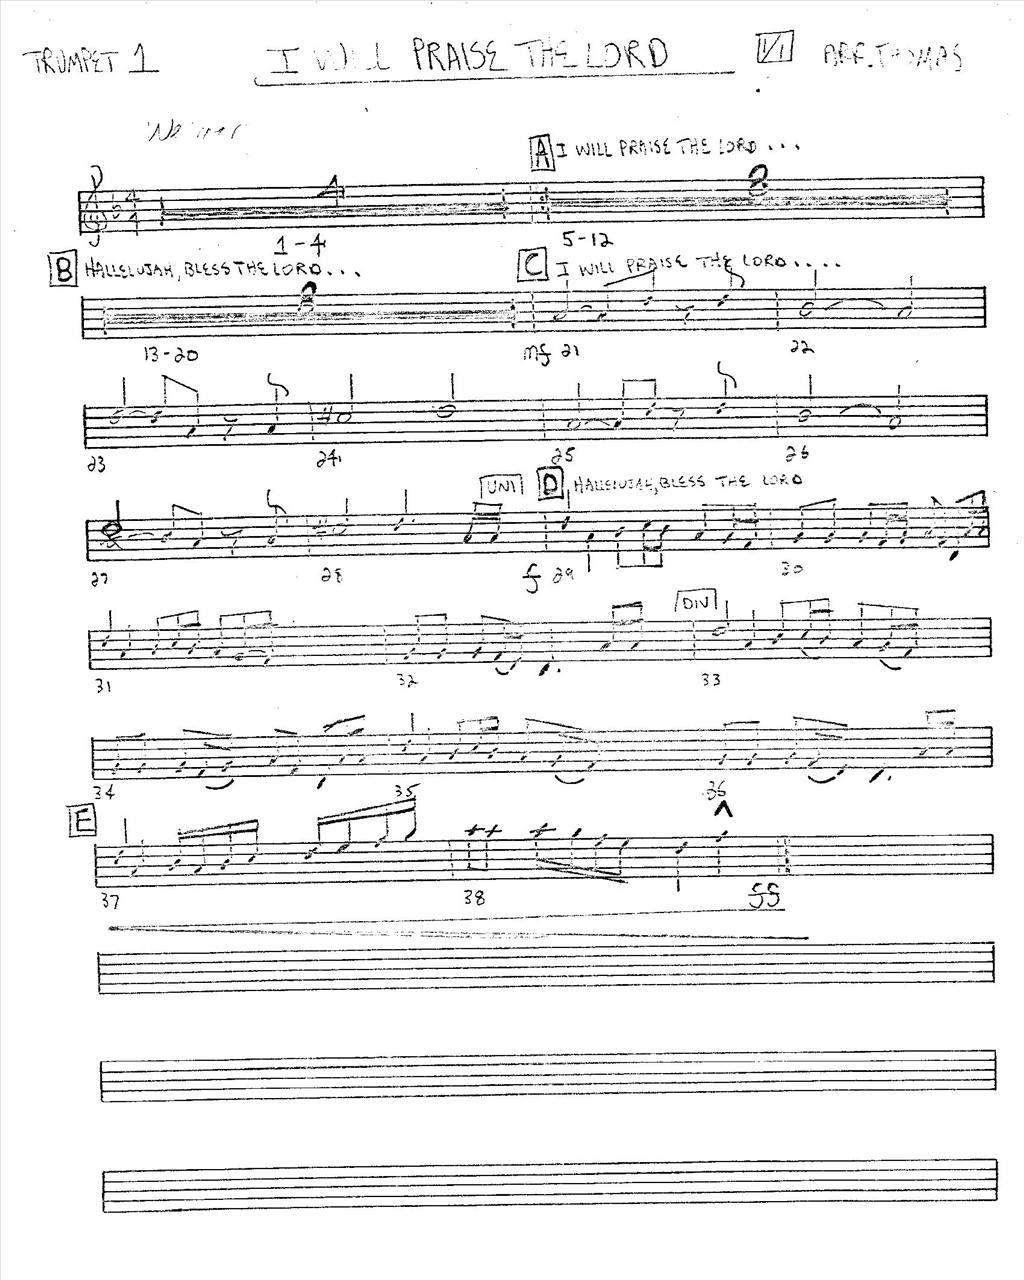 TRUMPET 1 I WILL PRAISE THE LORD 1/1 ARR. THOMAS
A I WILL PRAISE THE LORD ...
4 8
1-4 5-12
B HALLELUJAH, BLESS THE LORD ... C I WILL PRAISE THE LORD ....
8
13-20 mf 21 22
23 24 25 26
UNI D HALLELUJAH, BLESS THE LORD
27 28 f 29 30
DIV
31 32 33
34 35 36
E
37 38 ff